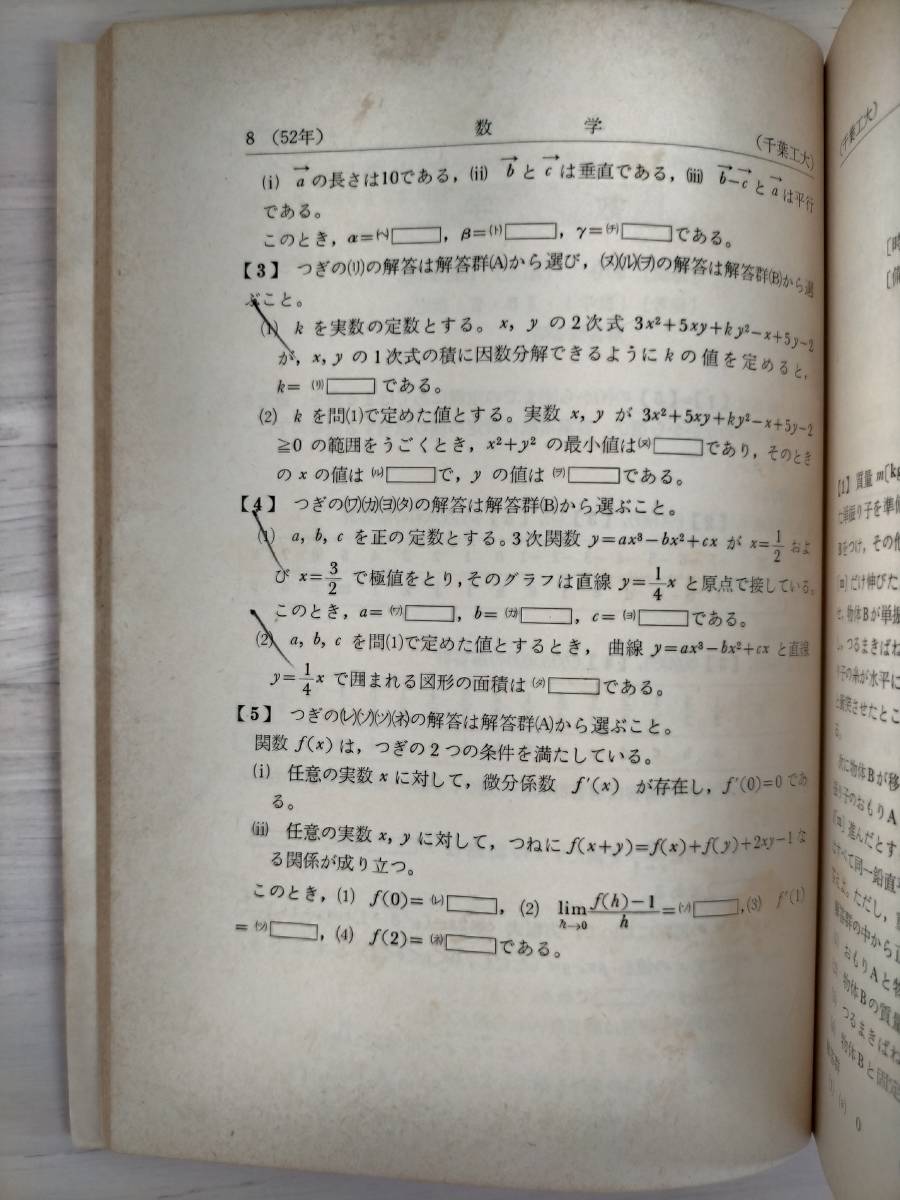 8 (52年) 数学 (千葉工大)
(i) a→の長さは10である, (ii) b→とc→は垂直である, (iii) b−c→とa→は平行
である。
このとき, α=(ヘ)□, β=(ト)□, γ=(チ)□である。
【3】 つぎの(リ)の解答は解答群(A)から選び, (ヌ)(ル)(ヲ)の解答は解答群(B)から選
ぶこと。
(1) k を実数の定数とする。x, y の2次式 3x²+5xy+ky²−x+5y−2
が, x, y の1次式の積に因数分解できるようにkの値を定めると,
k= (リ)□である。
(2) k を問(1)で定めた値とする。実数 x, y が 3x²+5xy+ky²−x+5y−2
≧0 の範囲をうごくとき, x²+y² の最小値は(ヌ)□であり, そのとき
の x の値は (ル)□で, y の値は (ヲ)□である。
【4】 つぎの(ワ)(カ)(ヨ)(タ)の解答は解答群(B)から選ぶこと。
(1) a, b, c を正の定数とする。3次関数 y=ax³−bx²+cx が x=1/2 およ
び x=3/2 で極値をとり, そのグラフは直線 y=1/4x と原点で接している。
このとき, a= (ワ)□, b= (カ)□, c= (ヨ)□である。
(2) a, b, c を問(1)で定めた値とするとき, 曲線 y=ax³−bx²+cx と直線
y=1/4x で囲まれる図形の面積は (タ)□である。
【5】 つぎの(レ)(ソ)(ツ)(ネ)の解答は解答群(A)から選ぶこと。
関数 f(x) は, つぎの2つの条件を満たしている。
(i) 任意の実数 x に対して, 微分係数 f′(x) が存在し, f′(0)=0 であ
る。
(ii) 任意の実数 x, y に対して, つねに f(x+y)=f(x)+f(y)+2xy−1 な
る関係が成り立つ。
このとき, (1) f(0)= (レ)□, (2) lim h→0 f(h)−1/h = (ソ)□, (3) f′(1)
= (ツ)□, (4) f(2)= (ネ)□である。
(千葉工大)
【1】 質量 m〔kg
で単振り子を準備
Bをつけ, その他
〔m〕だけ伸びた
せ, 物体Bが単振
し, つるまきばね
り子の糸が水平に
と衝突させたとこ
る。
次に物体Bが移
振り子のおもりA
〔m〕進んだとす
はすべて同一鉛直
ただし,
解答群の中から正
おもりAと物
物体Bの質量
つるまきばね
物体Bと固定
0